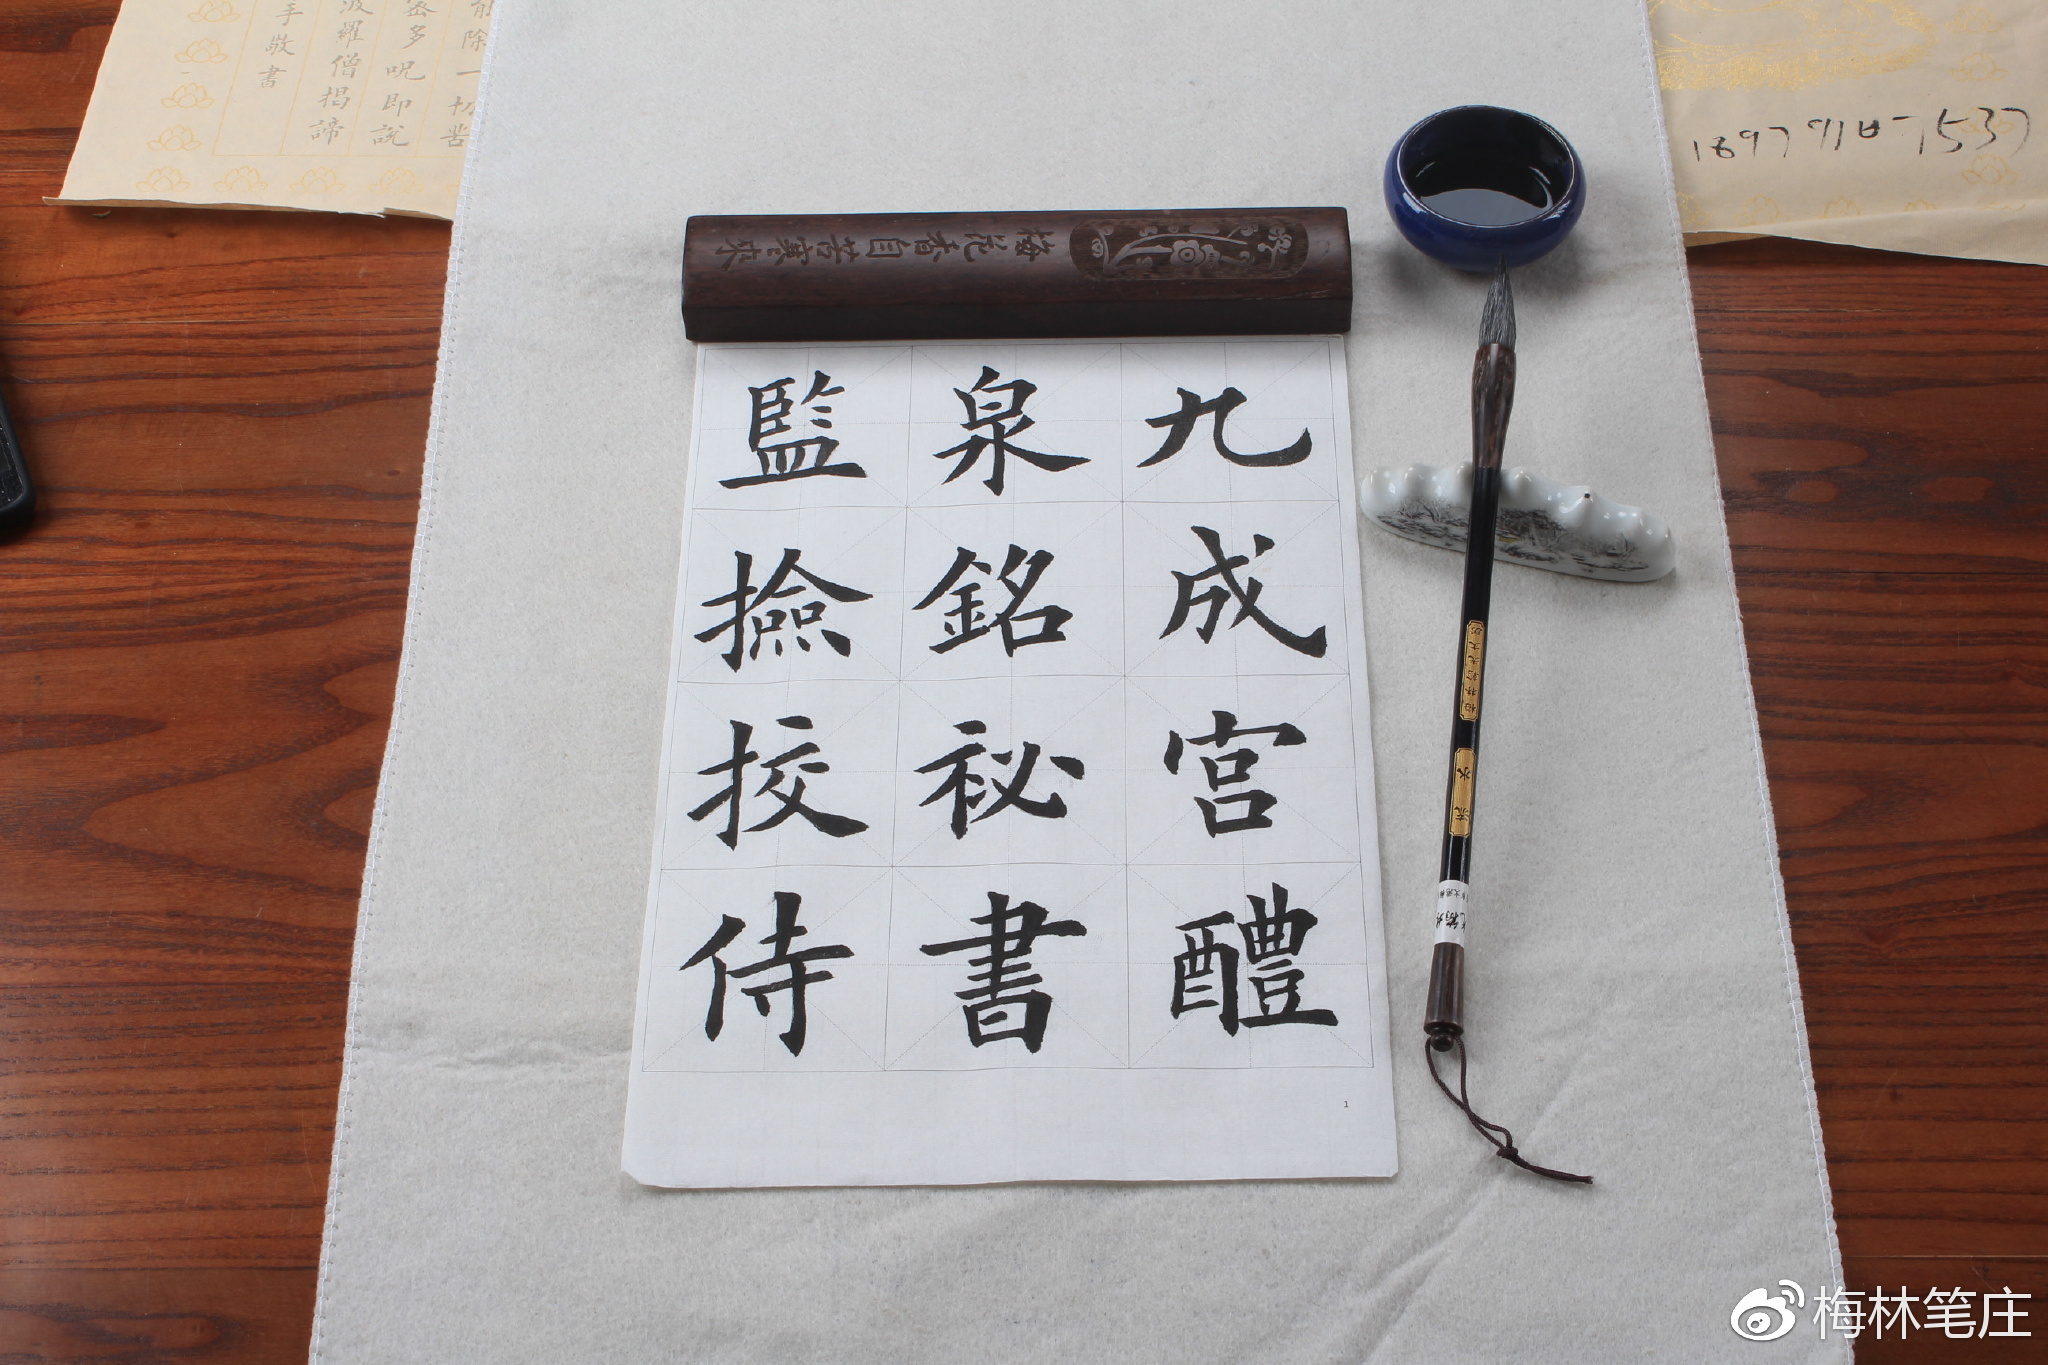 九成宮醴
泉銘祕書
監撿挍侍
梅花香自苦寒来
1
能除一切苦
多呪即說
波羅僧揭諦
手敬書
流水
梅林笔庄